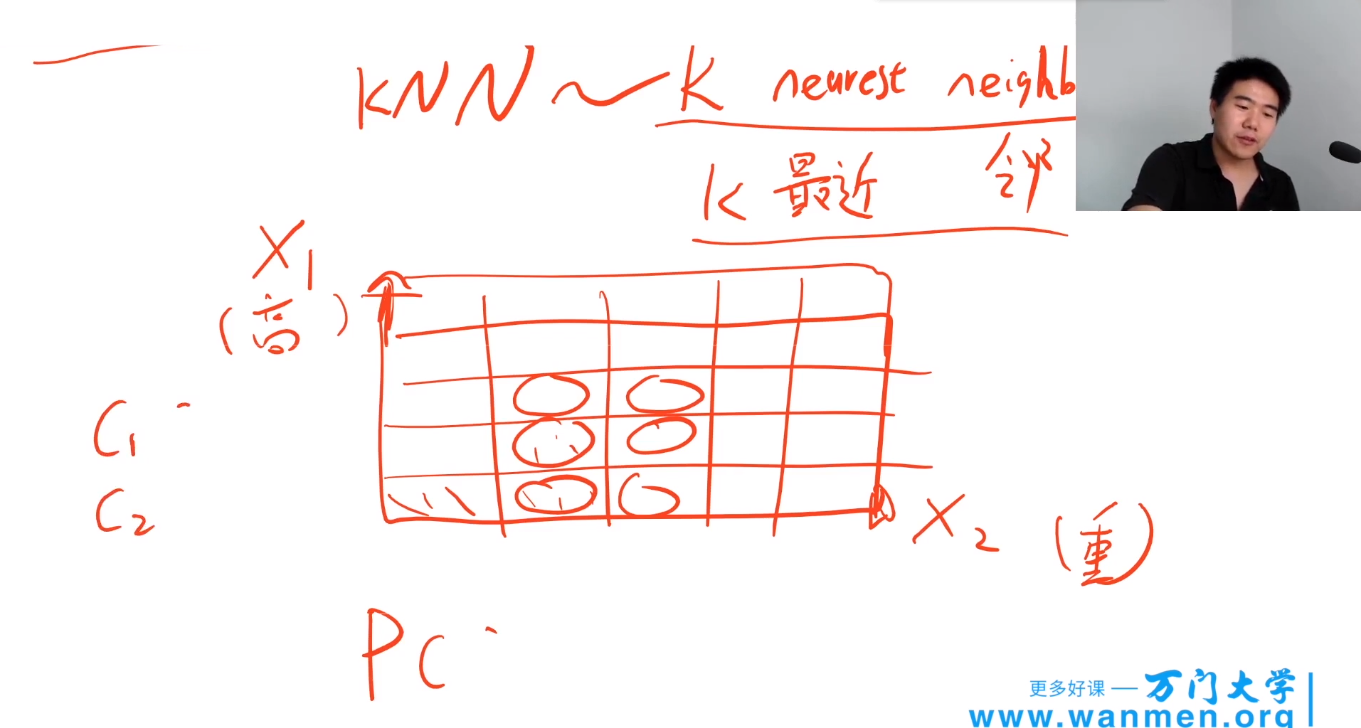 KNN ~ K nearest neighb
K 最近 邻
X1
(高)
C1
C2
X2 (重)
PC
更多好课 — 万门大学
www.wanmen.org